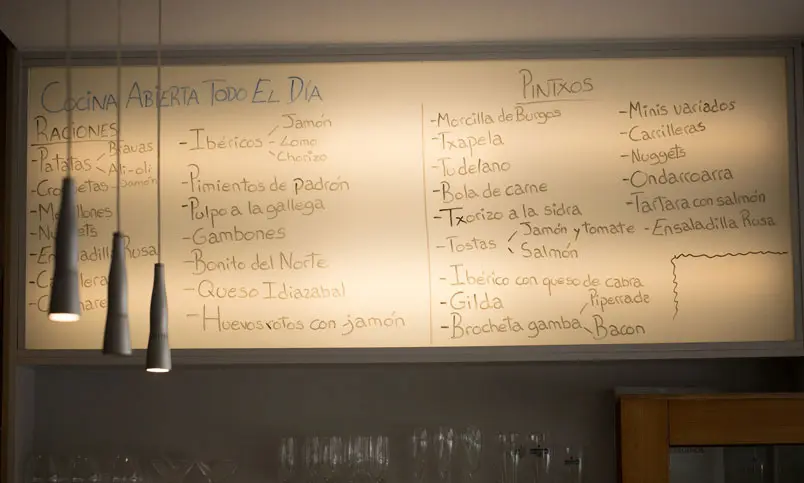 COCINA ABIERTA TODO EL DÍA
RACIONES
-Patatas Bravas
Ali-oli
-Croquetas Jamón
-Nuggets
-Ensaladilla Rosa
-Ibéricos Jamón
Lomo
Chorizo
-Pimientos de padrón
-Pulpo a la gallega
-Gambones
-Bonito del Norte
-Queso Idiazabal
-Huevos rotos con jamón
PINTXOS
-Morcilla de Burgos
-Txapela
-Tudelano
-Bola de carne
-Txorizo a la sidra
-Tostas Jamón y tomate
Salmón
-Ibérico con queso de cabra
-Gilda
-Brocheta gamba Piperrade
Bacon
-Minis variados
-Carrilleras
-Nuggets
-Ondarroarra
-Tartara con salmón
-Ensaladilla Rusa